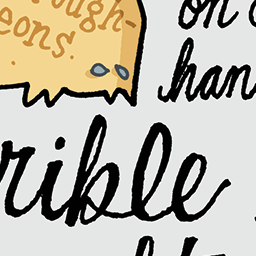 ough-
eons.
on
han
rible